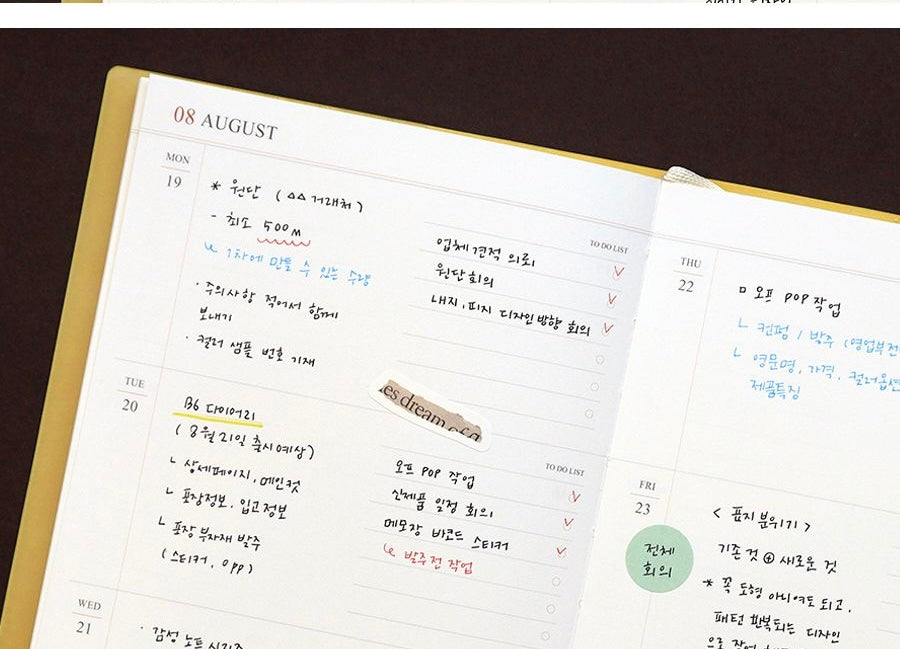 08 AUGUST
MON
19
* 원단 (△△ 거래처)
- 최소 500m
↳ 1차에 만들 수 있는 수량
· 주의사항 적어서 함께
보내기
· 컬러 샘플 번호 기재
TO DO LIST
업체 견적 의뢰 ✓
원단회의 ✓
내지, 피지 디자인방향 회의 ✓
TUE
20
B6 다이어리
(8월 21일 출시예상)
└ 상세페이지, 메인컷
└ 포장정보, 입고정보
└ 포장 부자재 발주
(스티커, opp)
es dream of a
TO DO LIST
오프 POP 작업 ✓
신제품 일정 회의 ✓
메모장 바코드 스티커 ✓
↳ 발주전 작업
WED
21
· 감성 노트 시리즈
THU
22
□ 오프 POP 작업
└ 컨펌 / 발주 (영업부전
└ 영문명, 가격, 컬러옵션
제품특징
FRI
23
전체
회의
< 표지 분위기 >
기존것 ⊕ 새로운 것
* 꼭 도형 아니여도 되고,
패턴 반복되는 디자인
으로 작업